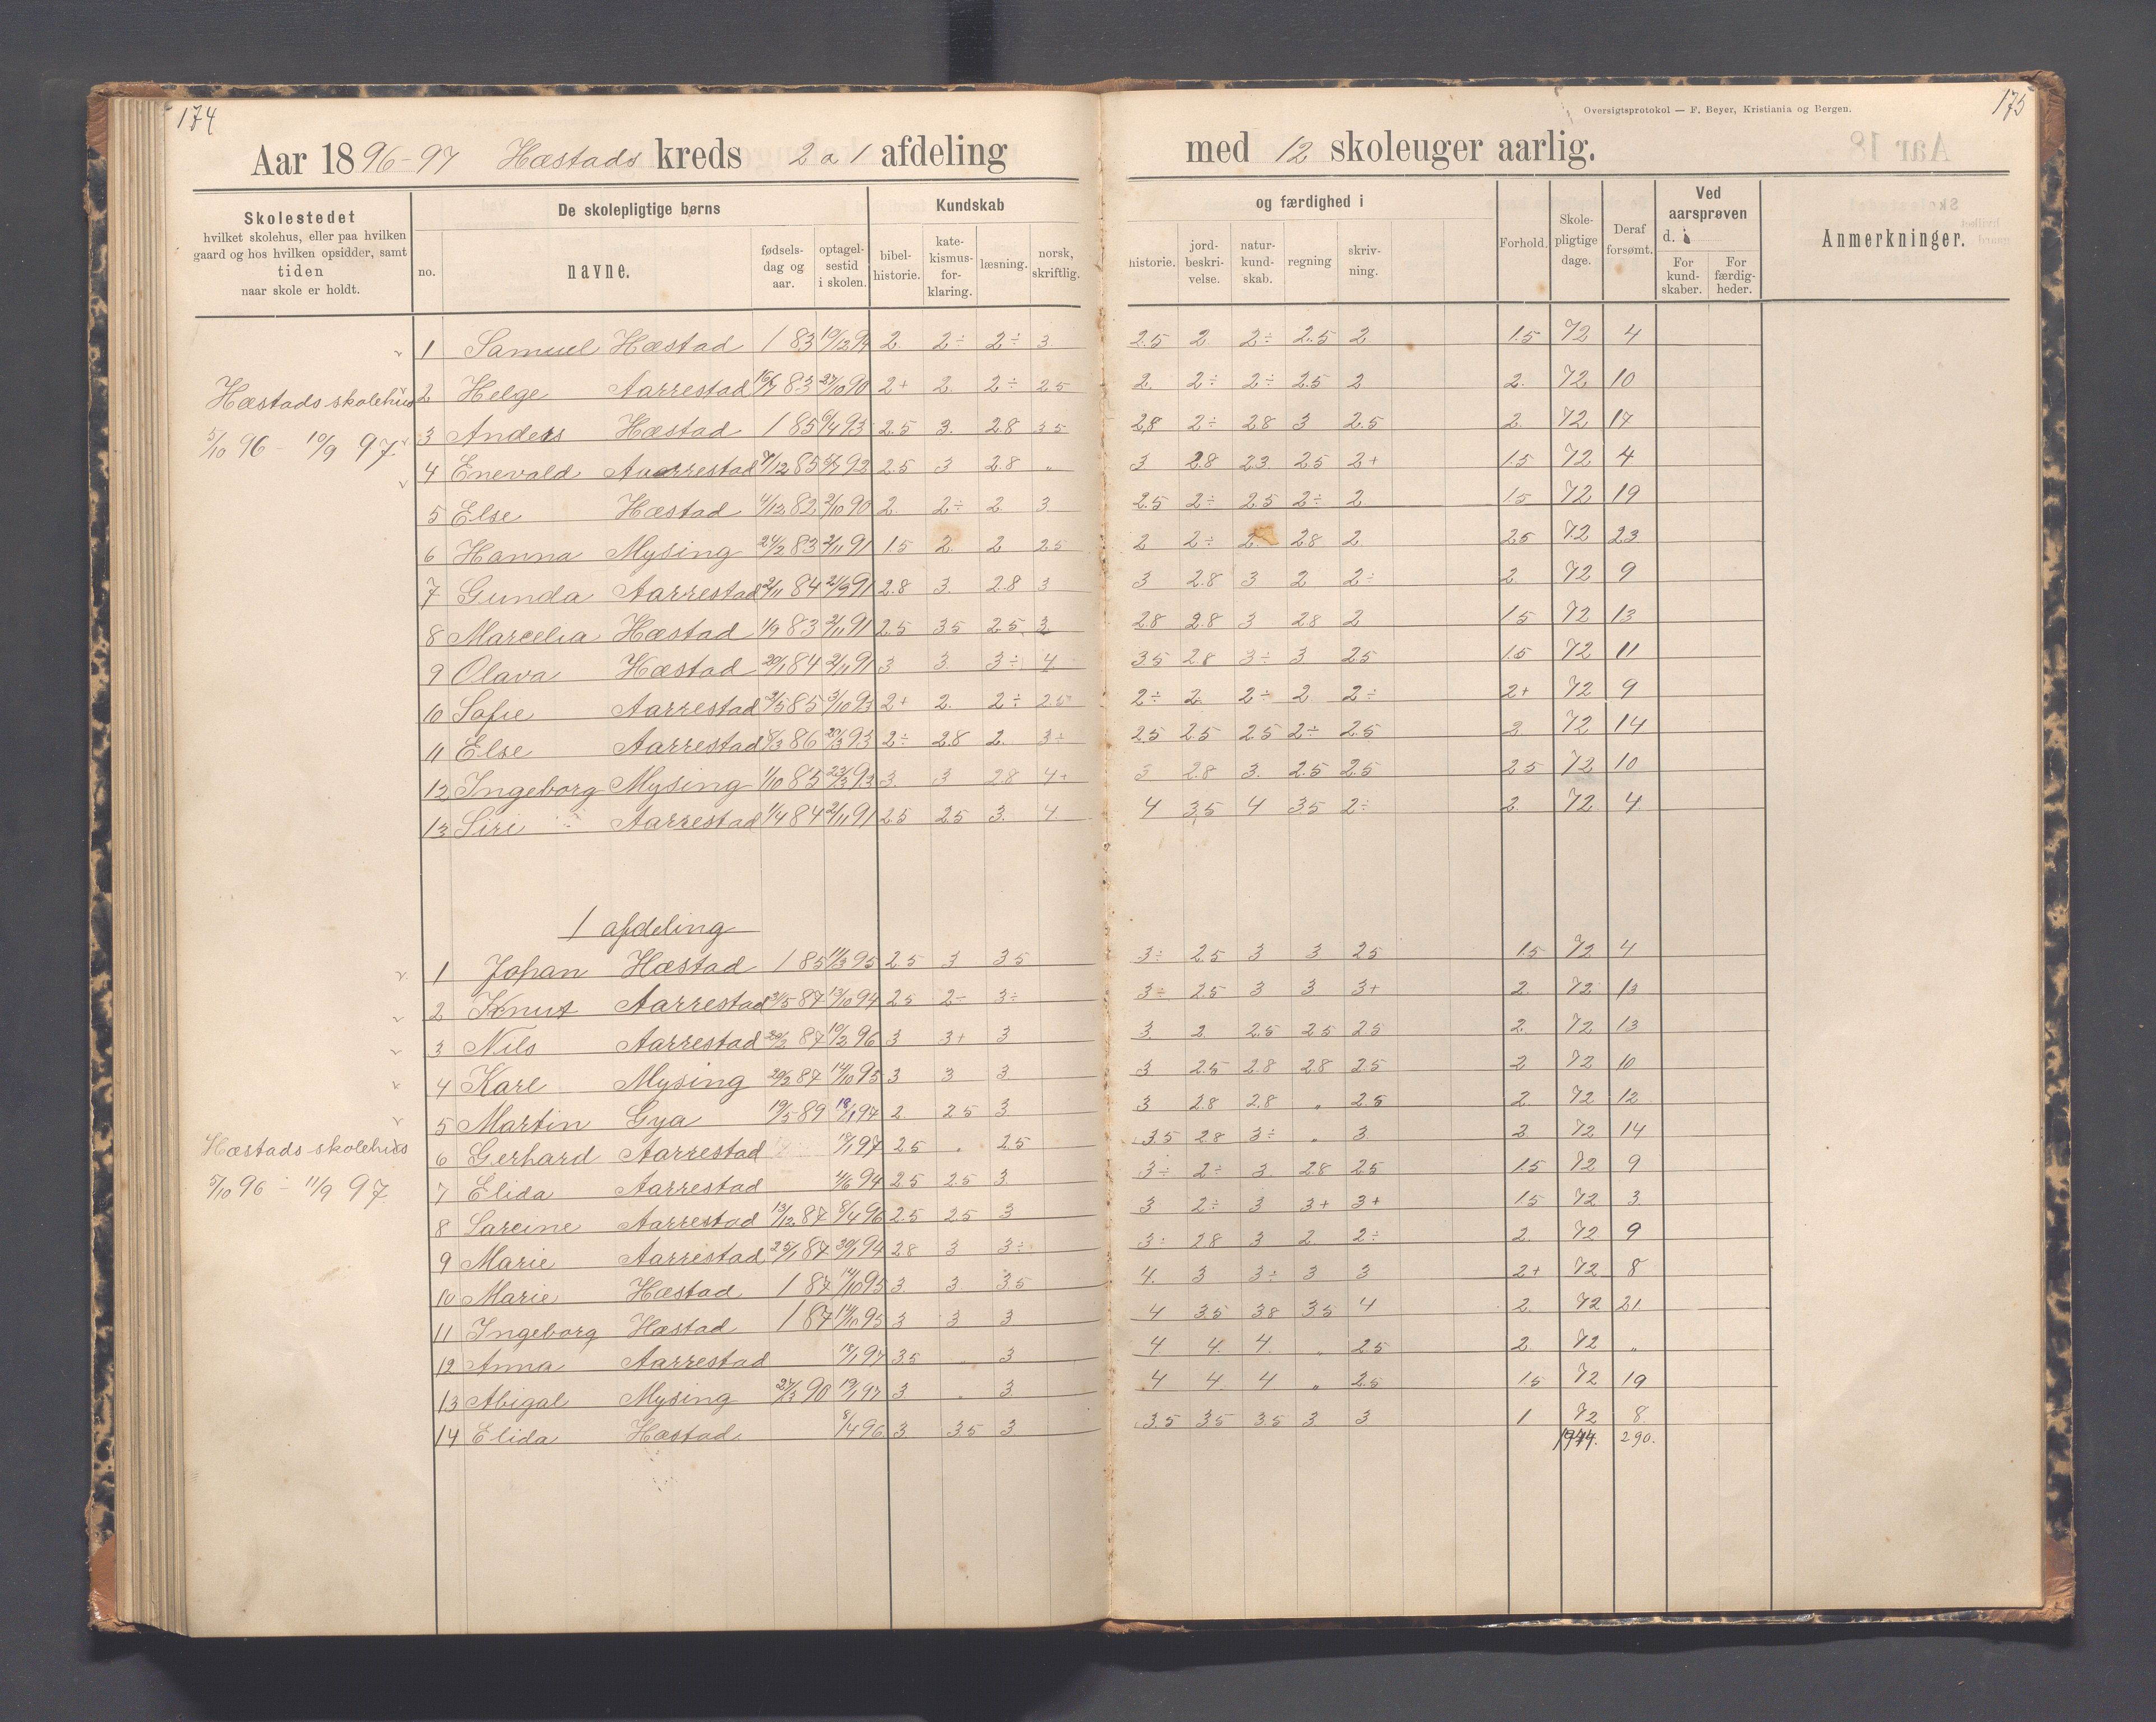 174
Aar 1896-97 Hæstads kreds 2 a 1 afdeling
Skolestedet hvilket skolehus, eller paa hvilken gaard og hos hvilken opsidder, samt tiden naar skole er holdt.
De skolepligtige børns
no. navne. fødsels-dag og aar. optagel-sestid i skolen.
Kundskab
bibel-historie. kate-kismus-for-klaring. læsning. norsk, skriftlig.
1 Samuel Hæstad 1 83 10/12 94 2 2÷ 2÷ 3
Hæstads skolehus
5/10 96 - 10/9 97
2 Helge Aarrestad 83 27/10 90 2+ 2 2÷ 2.5
3 Anders Hæstad 1 85 93 2.5 3. 2.8 3.5
4 Enevald Aarrestad 7/12 85 92 2.5 3 2.8 "
5 Else Hæstad 4/12 82 2/10 90 2 2÷ 2 3
6 Hanna Mysing 24/2 83 2/11 91 1.5 2 2 2.5
7 Gunda Aarrestad 2/11 84 21/9 91 2.8 3 2.8 3
8 Marcelia Hæstad 1/9 83 2/11 91 2.5 3.5 2.5 3
9 Olava Hæstad 20/1 84 2/11 91 3 3 3÷ 4
10 Sofie Aarrestad 2/5 85 3/10 93 2+ 2 2÷ 2.5
11 Else Aarrestad 8/3 86 20/3 93 2÷ 2.8 2 3÷
12 Ingeborg Mysing 1/10 85 23/3 93 3 3 2.8 4+
13 Siri Aarrestad 1/4 84 2/11 91 2.5 2.5 3. 4
1 afdeling
1 Johan Hæstad 1 85 11/3 95 2.5 3 3.5
2 Knut Aarrestad 31/5 87 13/10 94 2.5 2÷ 3÷
3 Nils Aarrestad 87 10/2 96 3 3+ 3
4 Karl Mysing 20/3 87 14/10 95 3 3 3
5 Martin Gya 19/5 89 18/1 97 2 2.5 3
Hæstads skolehus
5/10 96 - 11/9 97
6 Gerhard Aarrestad 18/1 97 2.5 " 2.5
7 Elida Aarrestad 4/6 94 2.5 2.5 3
8 Sareine Aarrestad 13/12 87 8/4 96 2.5 2.5 3
9 Marie Aarrestad 25/1 87 30/1 94 2.8 3 3÷
10 Marie Hæstad 1 87 14/10 95 3 3 3.5
11 Ingeborg Hæstad 1 87 14/10 95 3 3 3
12 Anna Aarrestad 18/1 97 3.5 " 3
13 Abigal Mysing 27/3 90 19/1 97 3 " 3
14 Elida Hæstad 8/4 96 3 3.5 3
Oversigtsprotokol — F. Beyer, Kristiania og Bergen.
175
med 12 skoleuger aarlig.
og færdighed i
historie. jord-beskri-velse. natur-kund-skab. regning skriv-ning.
Forhold. Skole-pligtige dage. Deraf forsømt. Ved aarsprøven d. For kund-skaber. For færdig-heder. Anmerkninger.
2.5 2 2÷ 2.5 2 1.5 72 4
2 2÷ 2÷ 2.5 2 2. 72 10
2.8 2÷ 2.8 3 2.5 2. 72 17
3 2.8 2.3 2.5 2+ 1.5 72 4
2.5 2÷ 2.5 2÷ 2 1.5 72 19
2 2÷ 2 2.8 2 2.5 72 23
3 2.8 3 2 2÷ 2 72 9
2.8 2.8 3 2.8 2 1.5 72 13
3.5 2.8 3÷ 3 2.5 1.5 72 11
2÷ 2 2÷ 2 2÷ 2+ 72 9
2.5 2.5 2.5 2÷ 2.5 2 72 14
3 2.8 3. 2.5 2.5 2.5 72 10
4 3.5 4 3.5 2÷ 2 72 4
3÷ 2.5 3 3 2.5 1.5 72 4
3÷ 2.5 3 3 3+ 2 72 13
3 2 2.5 2.5 2.5 2 72 13
3 2.5 2.8 2.8 2.5 2 72 10
3 2.8 2.8 " 2.5 2 72 12
3.5 2.8 3÷ " 3 2 72 14
3÷ 2÷ 3 2.8 2.5 1.5 72 9
3 2÷ 3 3+ 3+ 1.5 72 3
3÷ 2.8 3 2 2÷ 2. 72 9
4. 3 3÷ 3 3 2+ 72 8
4 3.5 3.8 3.5 4 2 72 21
4 4. 4. " 2.5 2 72 "
4 4 4 " 2.5 1.5 72 19
3.5 3.5 3.5 3 3 1 72 8
1944. 290.